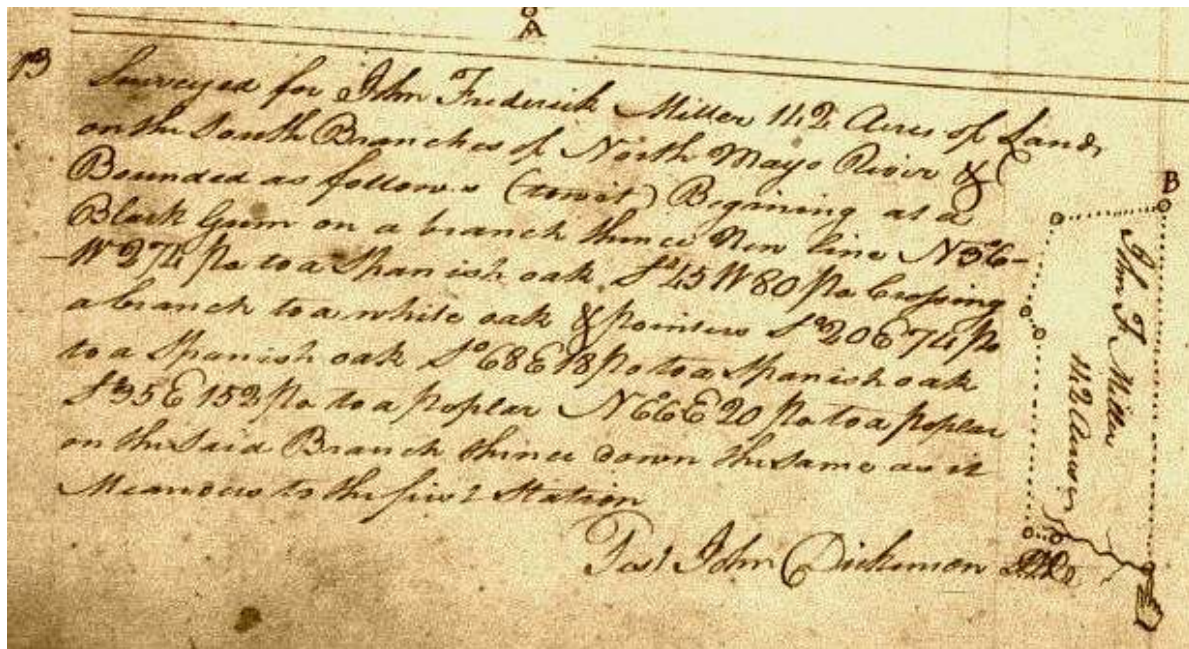 A
13 Surveyed for John Frederick Miller 142 Acres of Land
on the South Branches of North Mayo River &
Bounded as follows (towit) Begining at a
Black Gum on a branch thence New line N36
W 274 po to a Spanish oak So 45 W 80 po Crossing
a branch to a white oak & pointers So 20 E 74 po
to a Spanish oak So 68 E 18 po to a Spanish oak
So 35 E 152 po to a poplar N66E 20 po to a poplar
on the Said Branch thence down the same as it
Meanders to the first Station
John Dickenson
B
John F. Miller
142 Acres